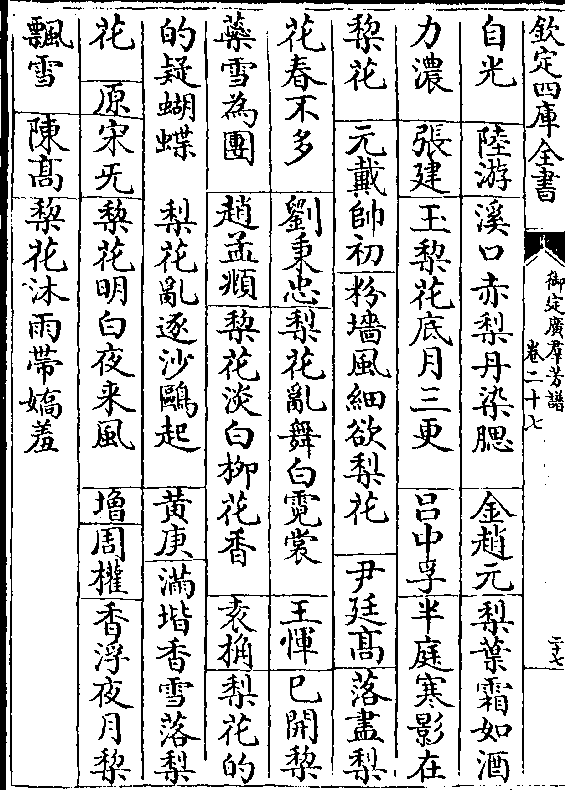 欽定四庫全書
御定廣羣芳譜
卷二十七
二十七
自光 陸游溪口赤梨丹染腮 金趙元梨葉霜如酒
力濃 張建玉梨花底月三更 吕中孚半庭寒影在
梨花 元戴帥初粉墻風細欲梨花 尹廷高落盡梨
花春不多 劉秉忠梨花亂舞白霓裳 王惲已開梨
蘂雪為團 趙孟頫梨花淡白柳花香 袁桷梨花的
的疑蝴蝶 梨花亂逐沙鷗起 黄庚滿堦香雪落梨
花 原宋旡梨花明白夜来風 增周權香浮夜月梨
飄雪 陳高梨花沐雨帶嬌羞